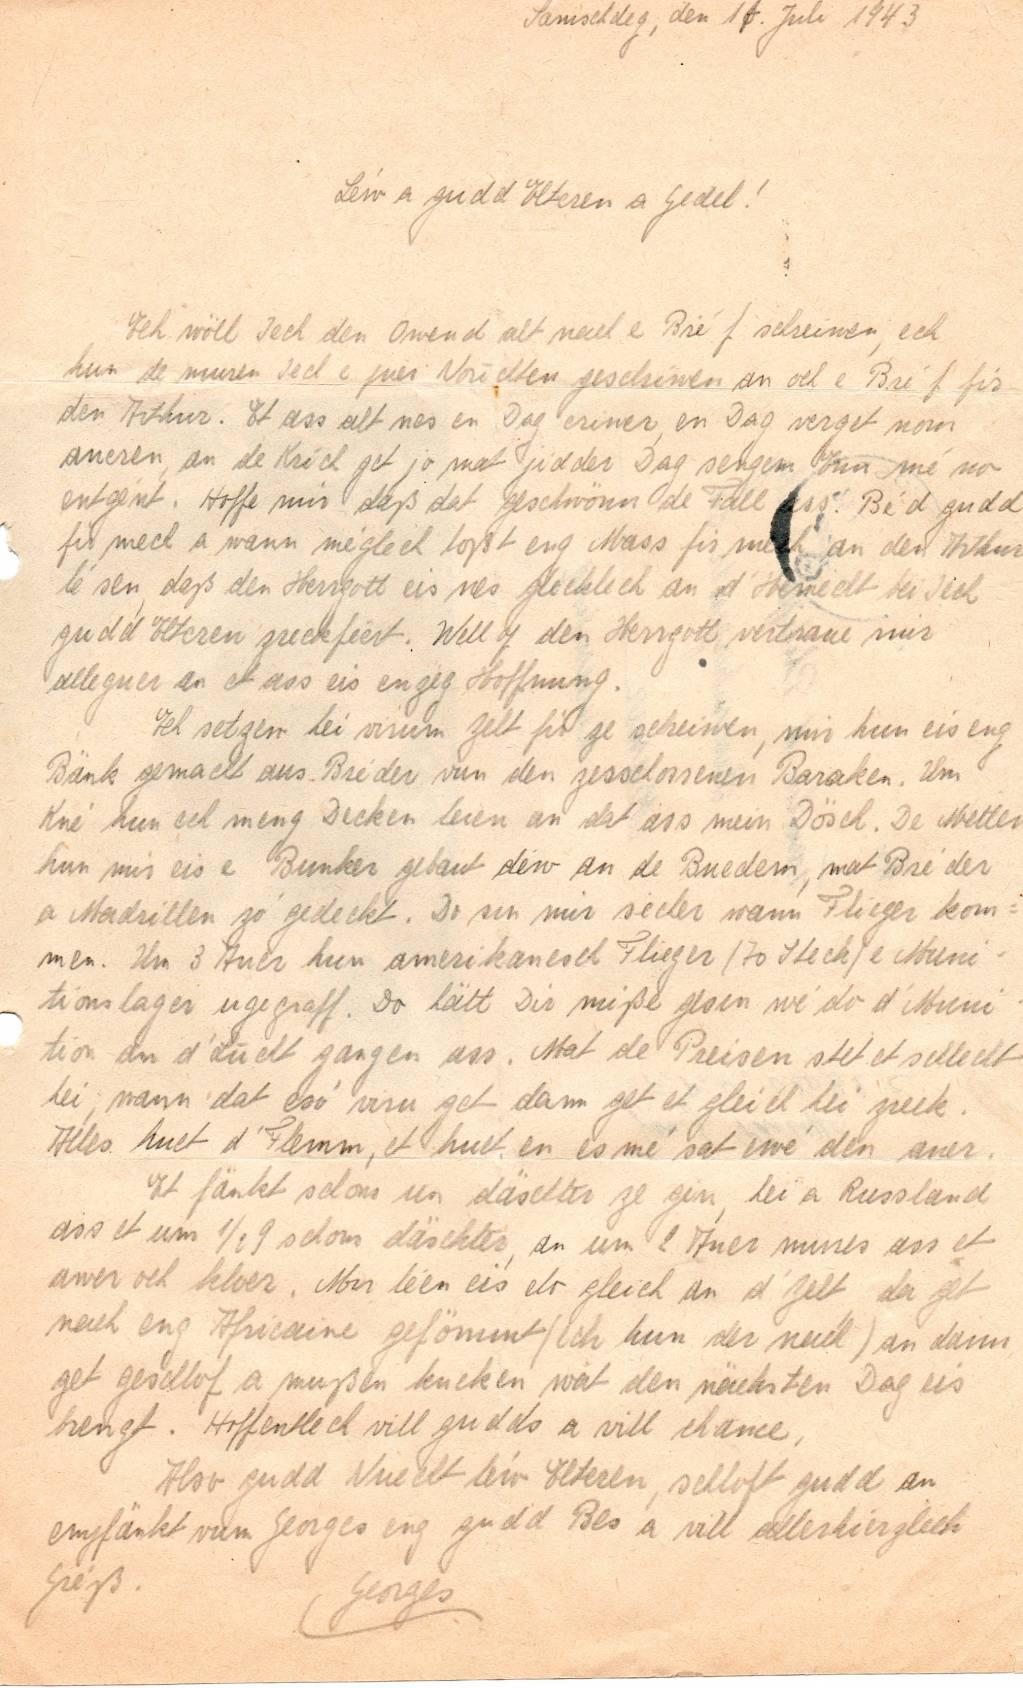 Samschdeg, den 1. Juli 1943
Léiw a gudd Elteren a Gedel!
Ech wöll Iech den Owend alt nach e Bréf schreiwen, ech
hun de muren Iech e puer geschriwen an och e Bréf fir
den Arthur. Et ass alt nes en Dag eriwer, en Dag verget nom
aneren, an de Krich get jo mat jidder Dag sengem Enn mé no
entgént. Hoffe mir daß dat geschwönn de Fall ass. Bé'd gudd
fir mech a wann méglech loßt eng Mass fir mech an den Arthur
lé'sen, daß den Herrgott eis nes glecklech an d'Hemecht bei Iech
gudd Elteren zreckféert. Well of den Herrgott vertraue mir
alleguer an et ass eis enzeg Hoffnung.
Ech setzen hei virum Zelt fir ze schreiwen, mir hun eis eng
Bänk gemacht aus Bréder vun den zesschossenen Baraken. Um
Kné hun ech meng Decken leien an dat ass mein Dösch. De Metten
hun mir eis e Bunker gebaut déiw an de Buedem, mat Bréder
a Madrillen zó gedeckt. Do sin mir sécher wann Flieger kom=
men. Um 3 Auer hun amerikanesch Flieger (70 Steck) e Muni-
tionslager ugegraff. Do hätt Dir miße gesen wé do d'Muni-
tion an d'Lucht gangen ass. Mat de Preisen stet et schlecht
hei, wann dat esó viru get dann get et gleich hei zreck.
Alles huet d'Flemm, et huet en es mé sat ewé den aner.
Et fänkt schons un däischter ze gin, hei a Russland
ass et um 1/2 9 schons däschter, an um 2 Auer mures ass et
awer och kloer. Mir léen eis elo gleich an d'Zelt da get
nach eng Africaine gefömmt (ech hun der nach) an dann
get geschlof a mußen kucken wat den nächsten Dag eis
brengt. Hoffentlech vill gudds a vill chance.
Also gudd Nuecht léiw Elteren, schloft gudd an
empfänkt vum Georges eng gudd Bes a vill allerhierzlech
Gréß.
Georges